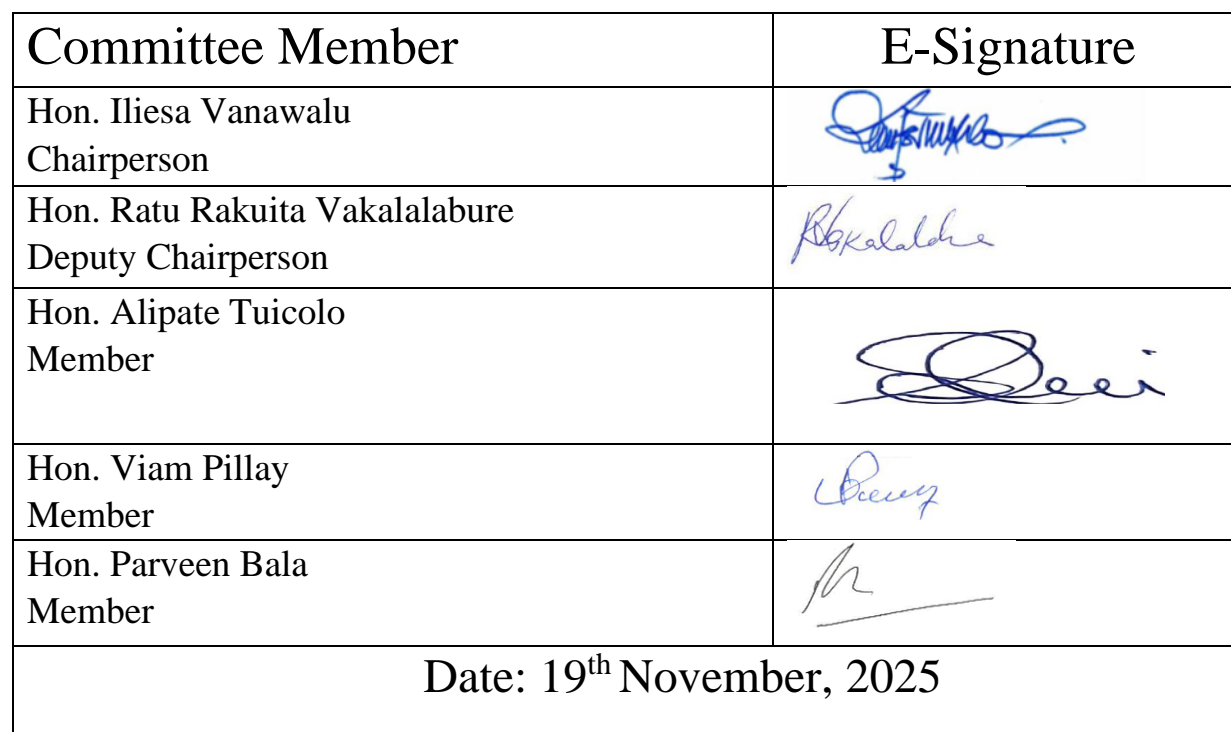 Committee Member E-Signature
Hon. Iliesa Vanawalu
Chairperson
Hon. Ratu Rakuita Vakalalabure
Deputy Chairperson
Hon. Alipate Tuicolo
Member
Hon. Viam Pillay
Member
Hon. Parveen Bala
Member
Date: 19th November, 2025